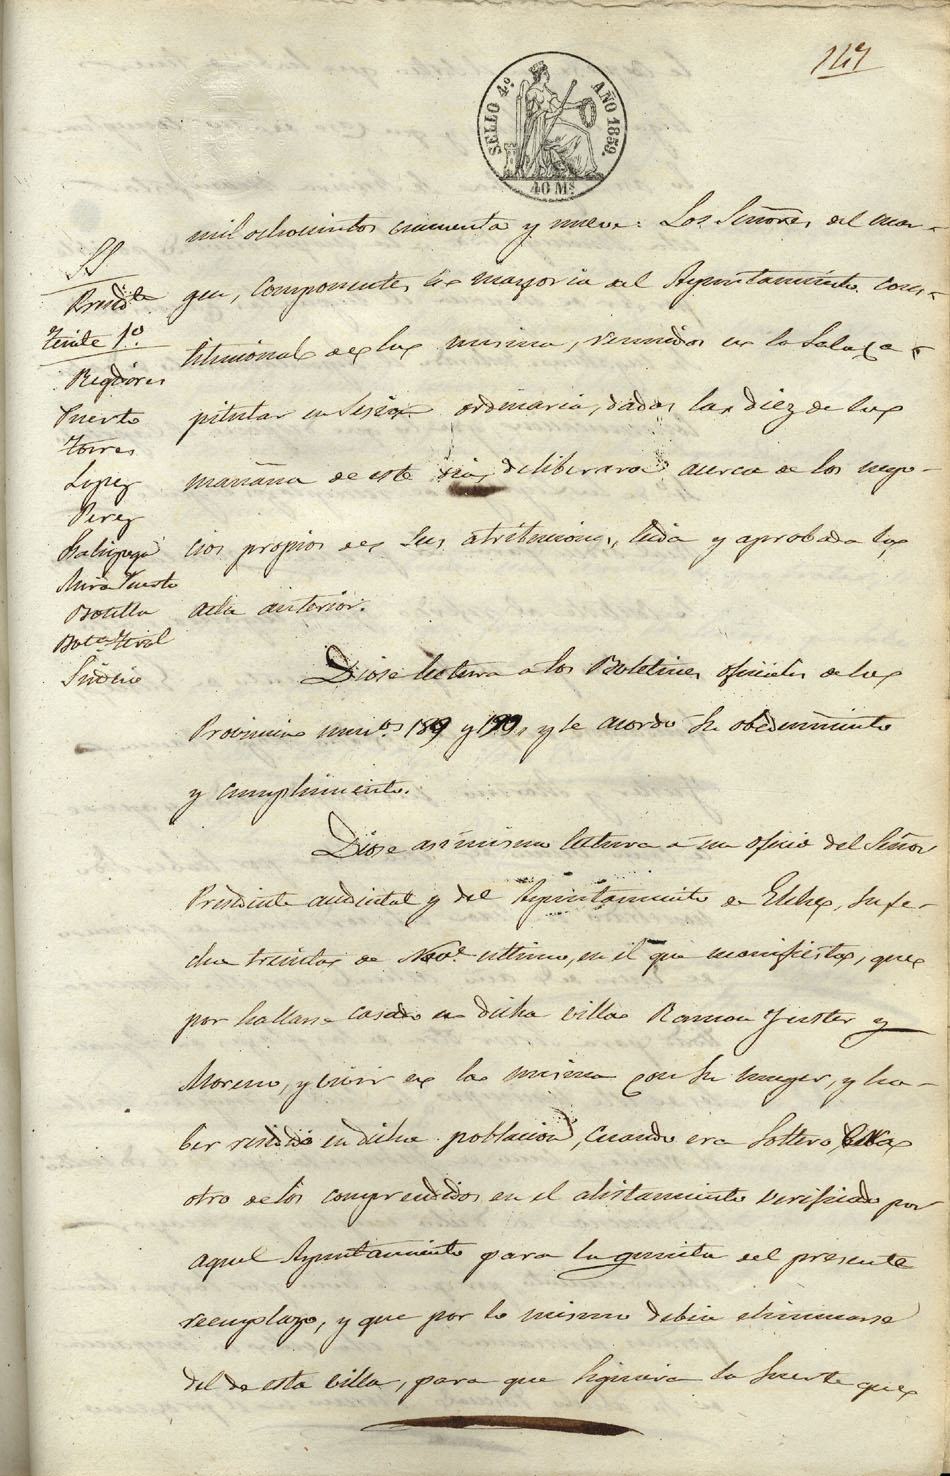 147
SELLO 4.º AÑO 1859.
40 Ms
SS
Presid.te
Ten.te 1.º
Regidores
Puerto
Torres
Lopez
Perez
Mira Puerto
Botella
Síndico
mil ochocientos cincuenta y nueve: Los Señores del mar-
gen, componentes la mayoria del Ayuntamiento cons-
titucional de la misma, reunidos en la Sala Ca-
pitular en Sesion ordinaria, dadas las diez de la
mañana de este dia, deliberaron acerca de los nego-
cios propios de sus atribuciones, leida y aprobada la
acta anterior.
Diose lectura a los Boletines oficiales de la
Provincia num.os 189 y 190, y se acordó su obedecimiento
y cumplimiento.
Diose asimismo lectura a un oficio del Señor
Presidente accidental y del Ayuntamiento de Elche, su fe-
cha treinta de Nov.e ultimo, en el que manifiesta, que
por hallarse casado en dicha villa Ramon Juster y
Moreno, y vivir en la misma con su muger, y ha-
ber residido en dicha poblacion, cuando era soltero
otro de los comprendidos en el alistamiento verificado por
aquel Ayuntamiento para la quinta del presente
reemplazo, y que por lo mismo debia eliminarse
del de esta villa, para que siguiera la suerte que